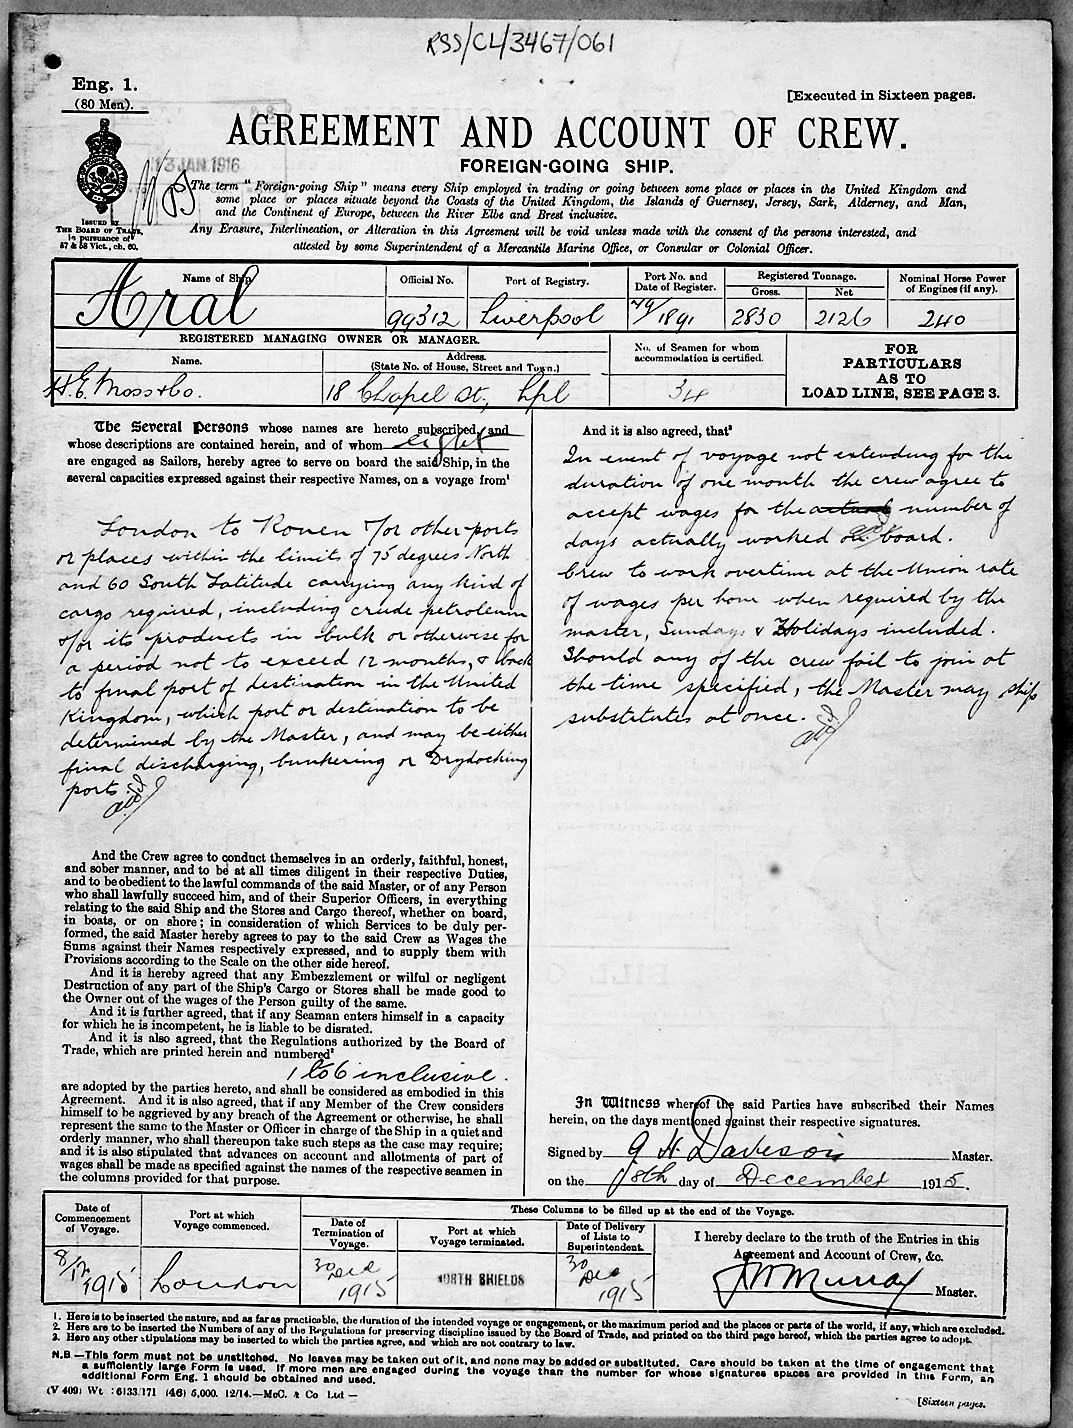 RSS/CL/3467/061
Eng. 1.
(80 Men).
[Executed in Sixteen pages.
AGREEMENT AND ACCOUNT OF CREW.
FOREIGN-GOING SHIP.
13 JAN. 1916
The term "Foreign-going Ship" means every Ship employed in trading or going between some place or places in the United Kingdom and
some place or places situate beyond the Coasts of the United Kingdom, the Islands of Guernsey, Jersey, Sark, Alderney, and Man,
and the Continent of Europe, between the River Elbe and Brest inclusive.
ISSUED BY
THE BOARD OF TRADE,
in pursuance of
57 & 58 Vict., ch. 60.
Any Erasure, Interlineation, or Alteration in this Agreement will be void unless made with the consent of the persons interested, and
attested by some Superintendent of a Mercantile Marine Office, or Consular or Colonial Officer.
Name of Ship
Official No.
Port of Registry.
Port No. and
Date of Register.
Registered Tonnage.
Gross.
Net
Nominal Horse Power
of Engines (if any).
Aral
99312
Liverpool
79/1891
2830
2126
240
REGISTERED MANAGING OWNER OR MANAGER.
Name.
Address.
(State No. of House, Street and Town.)
No. of Seamen for whom
accommodation is certified.
FOR
PARTICULARS
AS TO
LOAD LINE, SEE PAGE 3.
H.E. Moss & Co.
18 Chapel St., Lpl
34
The Several Persons whose names are hereto subscribed, and
whose descriptions are contained herein, and of whom eight
are engaged as Sailors, hereby agree to serve on board the said Ship, in the
several capacities expressed against their respective Names, on a voyage from¹
London to Rouen &/or other ports
or places within the limits of 75 degrees North
and 60 South Latitude carrying any kind of
cargo required, including crude petroleum
&/or its products in bulk or otherwise for
a period not to exceed 12 months, & back
to final port of destination in the United
Kingdom, which port or destination to be
determined by the Master, and may be either
final discharging, bunkering or Drydocking
ports.
And the Crew agree to conduct themselves in an orderly, faithful, honest,
and sober manner, and to be at all times diligent in their respective Duties,
and to be obedient to the lawful commands of the said Master, or of any Person
who shall lawfully succeed him, and of their Superior Officers, in everything
relating to the said Ship and the Stores and Cargo thereof, whether on board,
in boats, or on shore; in consideration of which Services to be duly per-
formed, the said Master hereby agrees to pay to the said Crew as Wages the
Sums against their Names respectively expressed, and to supply them with
Provisions according to the Scale on the other side hereof.
And it is hereby agreed that any Embezzlement or wilful or negligent
Destruction of any part of the Ship's Cargo or Stores shall be made good to
the Owner out of the wages of the Person guilty of the same.
And it is further agreed, that if any Seaman enters himself in a capacity
for which he is incompetent, he is liable to be disrated.
And it is also agreed, that the Regulations authorized by the Board of
Trade, which are printed herein and numbered²
1 to 6 inclusive.
are adopted by the parties hereto, and shall be considered as embodied in this
Agreement. And it is also agreed, that if any Member of the Crew considers
himself to be aggrieved by any breach of the Agreement or otherwise, he shall
represent the same to the Master or Officer in charge of the Ship in a quiet and
orderly manner, who shall thereupon take such steps as the case may require;
and it is also stipulated that advances on account and allotments of part of
wages shall be made as specified against the names of the respective seamen in
the columns provided for that purpose.
And it is also agreed, that³
In event of voyage not extending for the
duration of one month the crew agree to
accept wages for the actual number of
days actually worked on board.
Crew to work overtime at the Union rate
of wages per hour when required by the
master, Sundays & Holidays included.
Should any of the crew fail to join at
the time specified, the Master may ship
substitutes at once.
In Witness whereof the said Parties have subscribed their Names
herein, on the days mentioned against their respective signatures.
Signed by G H Davison Master.
on the 8th day of December 1915.
Date of
Commencement
of Voyage.
Port at which
Voyage commenced.
These Columns to be filled up at the end of the Voyage.
Date of
Termination of
Voyage.
Port at which
Voyage terminated.
Date of Delivery
of Lists to
Superintendent.
I hereby declare to the truth of the Entries in this
Agreement and Account of Crew, &c.
8/12/1915
London
30 Dec 1915
NORTH SHIELDS
30 Dec 1915
Murray Master.
1. Here is to be inserted the nature, and as far as practicable, the duration of the intended voyage or engagement, or the maximum period and the places or parts of the world, if any, which are excluded.
2. Here are to be inserted the Numbers of any of the Regulations for preserving discipline issued by the Board of Trade, and printed on the third page hereof, which the parties agree to adopt.
3. Here any other stipulations may be inserted to which the parties agree, and which are not contrary to law.
N.B.—This form must not be unstitched. No leaves may be taken out of it, and none may be added or substituted. Care should be taken at the time of engagement that
a sufficiently large Form is used. If more men are engaged during the voyage than the number for whose signatures spaces are provided in this Form, an
additional Form Eng. 1 should be obtained and used.
(V 409) Wt. 6133/171 (46) 5,000. 12/14.—McC. & Co Ltd—
[Sixteen pages.